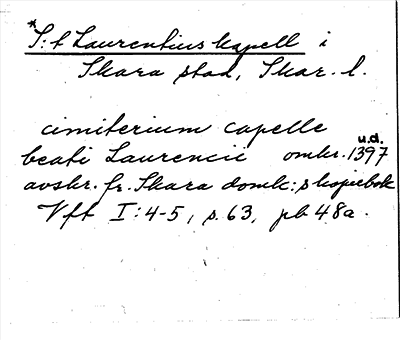 *S:t Laurentius kapell i
Skara stad, Skar. l.
cimiterium capelle
u.d.
beati Laurencii omkr. 1397
avskr. fr. Skara domk:s kopiebok
Vft I:4-5, s. 63, pb 48a.